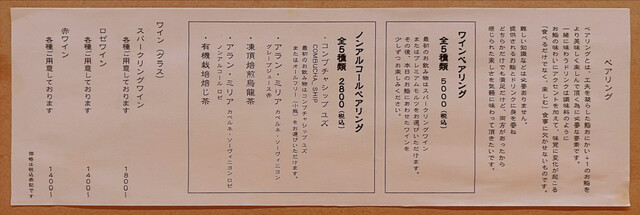 ペアリング
ペアリングとは、工夫を凝らした鮨おにかい+1のお鮨を
より美味しく楽しんで頂く為に必要な要素です。
一緒に味わうドリンクは調味料のように
お鮨の味わいにアクセントを加えて、味覚に変化が起こる
「食べるだけでなく、楽しむ」食事に欠かせないものです。
難しい知識などは必要ありません。
提供されるお鮨とドリンクに身を委ね
どちらかだけでも満足だけど、両方があったから
感じられた楽しさを気軽に味わって頂きたいです。
ワインペアリング
全5種類 5000(税込)
最初のお飲み物はスパークリングワイン
またはプレミアムモルツをお選びいただけます。
その後、本日のお鮨にあわせたワインを
少しずつお楽しみください。
ノンアルコールペアリング
全5種類 2800(税込)
最初のお飲み物はコンブチャシップ ユズ
またはオールフリー(小瓶)をお選びいただけます。
・コンブチャシップ ユズ
COMBUCHA_SHIP
・アラン・ミリア カベルネ・ソーヴィニヨン
グレープジュース赤
・凍頂焙煎烏龍茶
・アラン・ミリア カベルネ・ソーヴィニヨン ロゼ
ノンアルコール ロゼ
・有機栽培焙じ茶
ワイン(グラス)
スパークリングワイン
各種ご用意しております 1800〜
ロゼワイン
各種ご用意しております 1400〜
赤ワイン
各種ご用意しております 1400〜
価格は税込表記です